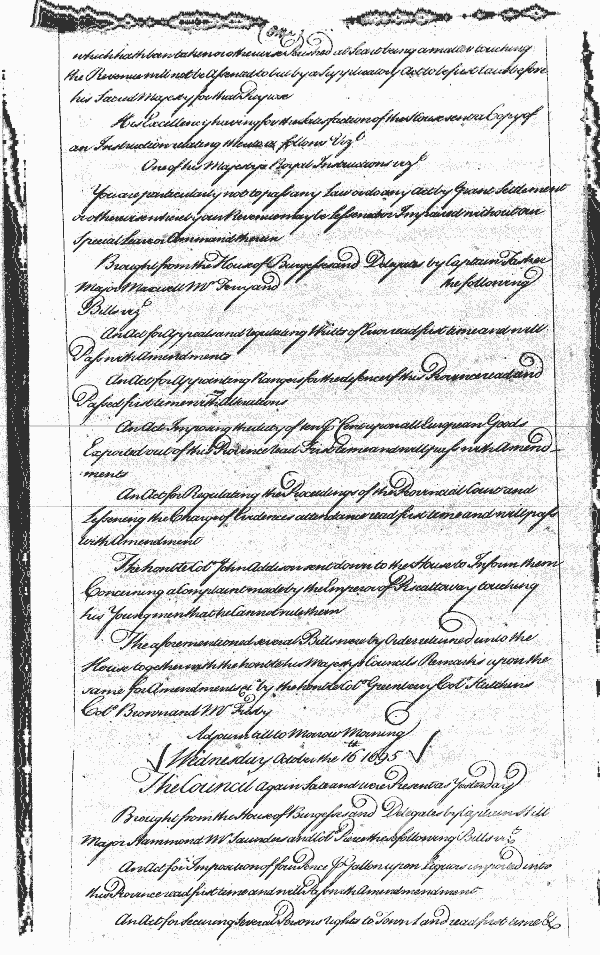 which hath been taken or otherwise finished at Sea it being a matter touching
the Revenue will not be Assented to but by as by applicatory Act to be first laid before
his Sacred Majesty for that Purpose
His Excellency having for the Satisfaction of the House sent a Copy of
an Instruction relating thereto as follows Vizt
One of his Majestys Royal Instructions vizt
You are particularly not to pass any Law or do any Act by Grant Settlement
or otherwise whereby Our Revenue may be lessened or Impaired without our
Special Leave or Command therein
Brought from the House of Burgesses and Delegates by Captain
Major Maxwell Mr and the following
Bills vizt
An Act for Appeals and regulating Writts of Error read first time and will
Pass with Amendments
An Act for Appointing Rangers for the defence of this Province read and
Passed first time with Alterations
An Act Imposing the duty of ten P Cent upon all European Goods
Exported out of this Province read First time and will pass with Amend-
ments
An Act for Regulating the Proceedings of the Provincial Court and
Lessening the Charge of Evidences attendance read first time and will pass
with Amendment
The honble Col John Addison sent down to the House to Inform them
Concerning a Complaint made by the Emperor of Piscattoway touching
his Young men that he Cannot rule them
The aforementioned several Bills were by Order returned unto the
House together with the honble his Majestys Councils Remarks upon the
same for Amendments &c by the honble Col Greenberry Col Hutchins
Col Brown and Mr
Adjourn'd till to Morrow Morning
Wednesday October the 16th 1695
The Council again Sate and were Present as Yesterday
Brought from the House of Burgesses and Delegates by Captain Hill
Major Hammond Mr Saunders and Col Pierce the following Bills vizt
An Act for Imposition of four Pence P Gallon upon Liquors imported into
this Province read first time and will Pass with Amendmendment
An Act for Securing Several Persons rights to Town Land read first time &c